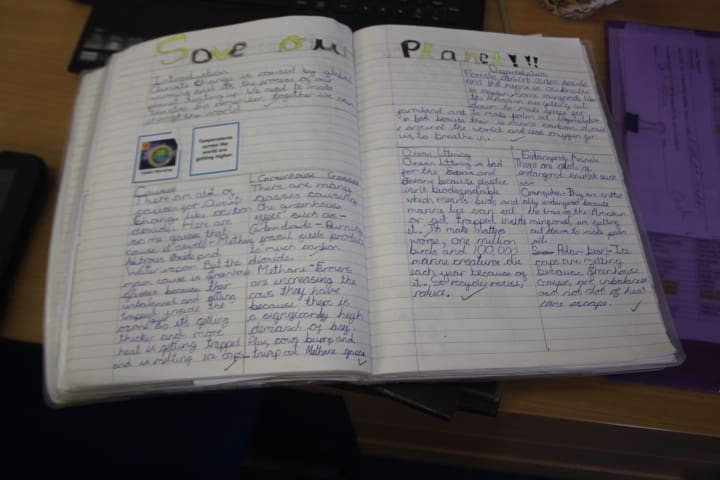 Save our Planet!!!
Introduction
Climate Change is caused by global
warming and its the process of our
planet heating up. We need to make
change the world
Temperatures
across the
world are
getting higher
Causes
There are alot of
causes for Climate
Change like carbon
dioxide. Here are
some gasses that
cause it aswell - Methane,
Nitrous Oxide and
Water vapor. But the
main cause is greenhouse
gasses because their
imbalanced and getting
traped inside the
ozone so its getting
thicker and more
heat is getting trapped
and is melting ice caps.
Greenhouse Gasses
There are many
gasses causing
the greenhouse
effect such as -
Carbon dioxide - Burning
fossil fuels produce
to much carbon
dioxide.
Methane - Farmers
are increasing the
cows they have
because there is
a significantly high
demand of beef.
Plus cows burp and
trump out Methane gasses
Deforestation
Forests absorb carbon dioxide
and this means we can breathe
in oxygen. Some
the Amazon are getting cut
down to make space for
farmland and to make palm oil. Deforestation
is bad because there is more carbon dioxide
around the world and less oxygen for
us to breathe in.
Ocean littering
Ocean littering is bad
for the Ocean
because plastic
isn't biodegradable
which means birds and
marine life can eat
or get trapped inside
it. To make matters
worse, one million
birds and 100,000
marine creatures die
each year because of
it, so recycle, reuse,
reduce.
Endangered Animals
There are alot of
endangered animals such
as:
Orangutan - They are critic
ally endangered because
the trees in the Amazon
rainforest are getting
cut down to make palm
oil.
Polar bear - Ice
caps are melting
because greenhouse
gasses are imbalanced
and not alot of heat
can escape.